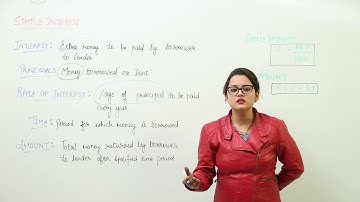 SIMPLE INTEREST
INTEREST: Extra money to be paid by borrower
to lender
PRINCIPAL: Money borrowed or lent
RATE OF INTEREST: %age of principal to be paid
every year
TIME: Period for which money is borrowed
AMOUNT: Total money returned by borrower
to lender after specified time period
SIMPLE INTEREST
SI = PRT
100
AMOUNT
A = P + SI